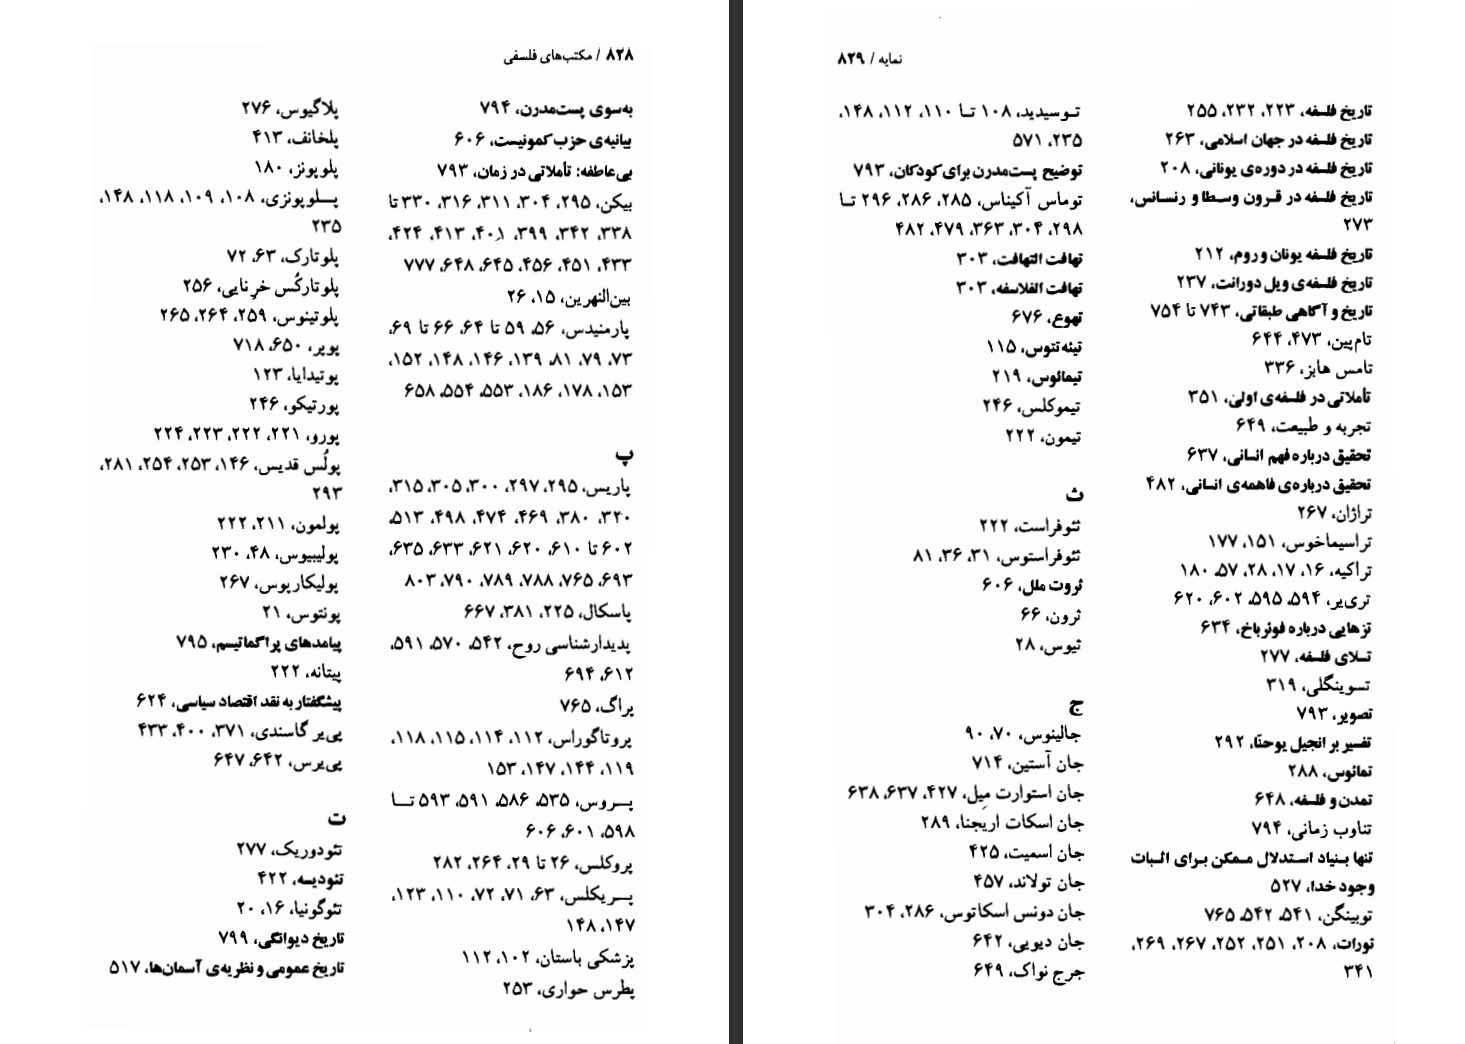 ۸۲۸ / مکتب‌های فلسفی
به‌سوی پست‌مدرن، ۷۹۴
بیانیه‌ی حزب کمونیست، ۶۰۶
بی‌عاطفه: تأملاتی در زمان، ۷۹۳
بیکن، ۲۹۵، ۳۰۴، ۳۱۱، ۳۱۶، ۳۳۰ تا
۳۳۸، ۳۴۲، ۳۹۹، ۴۰۱، ۴۱۳، ۴۲۴،
۴۳۳، ۴۵۱، ۴۵۶، ۶۴۵، ۶۴۸، ۷۷۷
بین‌النهرین، ۱۵، ۲۶
پارمنیدس، ۵۶، ۵۹ تا ۶۴، ۶۶ تا ۶۹،
۷۳، ۷۹، ۸۱، ۱۳۹، ۱۴۶، ۱۴۸، ۱۵۲،
۱۵۳، ۱۷۸، ۱۸۶، ۵۵۳، ۵۵۴، ۶۵۸
پ
پاریس، ۲۹۵، ۲۹۷، ۳۰۰، ۳۰۵، ۳۱۵،
۳۲۰، ۳۸۰، ۴۶۹، ۴۷۴، ۴۹۸، ۵۱۳،
۶۰۲ تا ۶۱۰، ۶۲۰، ۶۲۱، ۶۳۳، ۶۳۵،
۶۹۳، ۷۶۵، ۷۸۸، ۷۸۹، ۷۹۰، ۸۰۳
پاسکال، ۲۲۵، ۳۸۱، ۶۶۷
پدیدارشناسی روح، ۵۴۲، ۵۷۰، ۵۹۱،
۶۱۲، ۶۹۴
پراگ، ۷۶۵
پروتاگوراس، ۱۱۲، ۱۱۴، ۱۱۵، ۱۱۸،
۱۱۹، ۱۴۴، ۱۴۷، ۱۵۳
پروس، ۵۳۵، ۵۸۶، ۵۹۱، ۵۹۳ تا
۵۹۸، ۶۰۱، ۶۰۶
پروکلس، ۲۶ تا ۲۹، ۲۶۴، ۲۸۲
پریکلس، ۶۳، ۷۱، ۷۲، ۱۱۰، ۱۲۳،
۱۴۷، ۱۴۸
پزشکی باستان، ۱۰۲، ۱۱۲
پطرس حواری، ۲۵۳
پلاگیوس، ۲۷۶
پلخانف، ۴۱۳
پلوپونز، ۱۸۰
پلوپونزی، ۱۰۸، ۱۰۹، ۱۱۸، ۱۴۸،
۲۳۵
پلوتارک، ۶۳، ۷۲
پلوتارکُس خرِنایی، ۲۵۶
پلوتینوس، ۲۵۹، ۲۶۴، ۲۶۵
پوپر، ۶۵۰، ۷۱۸
پوتیدایا، ۱۲۳
پورتیکو، ۲۴۶
پورو، ۲۲۱، ۲۲۲، ۲۲۳، ۲۲۴
پولُس قدیس، ۱۴۶، ۲۵۳، ۲۵۴، ۲۸۱،
۲۹۳
پولمون، ۲۱۱، ۲۲۲
پولیبیوس، ۴۸، ۲۳۰
پولیکارپوس، ۲۶۷
پونتوس، ۲۱
پیامدهای پراگماتیسم، ۷۹۵
پیتانه، ۲۲۲
پیشگفتار به نقد اقتصاد سیاسی، ۶۲۴
پی‌یر گاسندی، ۳۷۱، ۴۰۰، ۴۳۳
پی‌یرس، ۶۴۲، ۶۴۷
ت
تئودوریک، ۲۷۷
تئودیسه، ۴۲۲
تئوگونیا، ۱۶، ۲۰
تاریخ دیوانگی، ۷۹۹
تاریخ عمومی و نظریه‌ی آسمان‌ها، ۵۱۷
نمایه / ۸۲۹
تاریخ فلسفه، ۲۲۳، ۲۳۲، ۲۵۵
تاریخ فلسفه در جهان اسلامی، ۲۶۳
تاریخ فلسفه در دوره‌ی یونانی، ۲۰۸
تاریخ فلسفه در قرون وسطا و رنسانس،
۲۷۳
تاریخ فلسفه یونان و روم، ۲۱۲
تاریخ فلسفه‌ی ویل دورانت، ۲۳۷
تاریخ و آگاهی طبقاتی، ۷۴۳ تا ۷۵۴
تام‌پین، ۴۷۳، ۶۴۴
تامس هابز، ۳۳۶
تأملاتی در فلسفه‌ی اولیٰ، ۳۵۱
تجربه و طبیعت، ۶۴۹
تحقیق درباره فهم انسانی، ۶۳۷
تحقیق درباره‌ی فاهمه‌ی انسانی، ۴۸۲
تراژان، ۲۶۷
تراسیماخوس، ۱۵۱، ۱۷۷
تراکیه، ۱۶، ۱۷، ۲۸، ۵۷، ۱۸۰
تری‌یر، ۵۹۴، ۵۹۵، ۶۰۲، ۶۲۰
تزهایی درباره فوئرباخ، ۶۳۴
تسلای فلسفه، ۲۷۷
تسوینگلی، ۳۱۹
تصویر، ۷۹۳
تفسیر بر انجیل یوحنّا، ۲۹۲
تمائوس، ۲۸۸
تمدن و فلسفه، ۶۴۸
تناوب زمانی، ۷۹۴
تنها بنیاد استدلال ممکن برای اثبات
وجود خدا، ۵۲۷
توبینگن، ۵۴۱، ۵۴۲، ۷۶۵
تورات، ۲۰۸، ۲۵۱، ۲۵۲، ۲۶۷، ۲۶۹،
۳۴۱
توسیدید، ۱۰۸ تا ۱۱۰، ۱۱۲، ۱۴۸،
۲۳۵، ۵۷۱
توضیح پست‌مدرن برای کودکان، ۷۹۳
توماس آکیناس، ۲۸۵، ۲۸۶، ۲۹۶ تا
۲۹۸، ۳۰۴، ۳۶۳، ۴۷۹، ۴۸۲
تهافت التهافت، ۳۰۳
تهافت الفلاسفه، ۳۰۳
تهوع، ۶۷۶
تیئه‌تتوس، ۱۱۵
تیمائوس، ۲۱۹
تیموکلس، ۲۴۶
تیمون، ۲۲۲
ث
ثئوفراست، ۲۲۲
ثئوفراستوس، ۳۱، ۳۶، ۸۱
ثروت ملل، ۶۰۶
ثرون، ۶۶
ثیوس، ۲۸
ج
جالینوس، ۷۰، ۹۰
جان آستین، ۷۱۴
جان استوارت مِیل، ۴۲۷، ۶۳۷، ۶۳۸
جان اسکات اریجنا، ۲۸۹
جان اسمیت، ۴۲۵
جان تولاند، ۴۵۷
جان دونس اسکاتوس، ۲۸۶، ۳۰۴
جان دیویی، ۶۴۲
جرج نواک، ۶۴۹